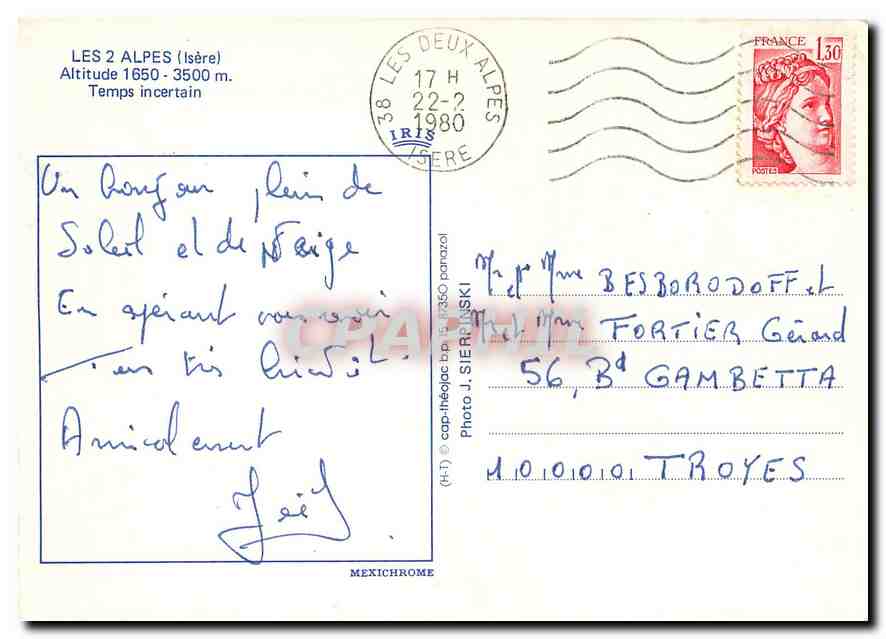 LES 2 ALPES (Isère)
Altitude 1650 - 3500 m.
Temps incertain
38 LES DEUX ALPES
17 H
22-2
1980
ISERE
IRIS
FRANCE
1,30
POSTES
Un bonjour plein de
Soleil et de Neige
En espérant vous revoir
tous très bientôt.
Amicalement
Joël
MEXICHROME
(H-T) © cap-théojac b.p. 15 87350 panazol
Photo J. SIERPINSKI
Mr et Mme BESBORODOFF et
Mr et Mme FORTIER Gérard
56, Bd GAMBETTA
10000 TROYES
CPAPHIL